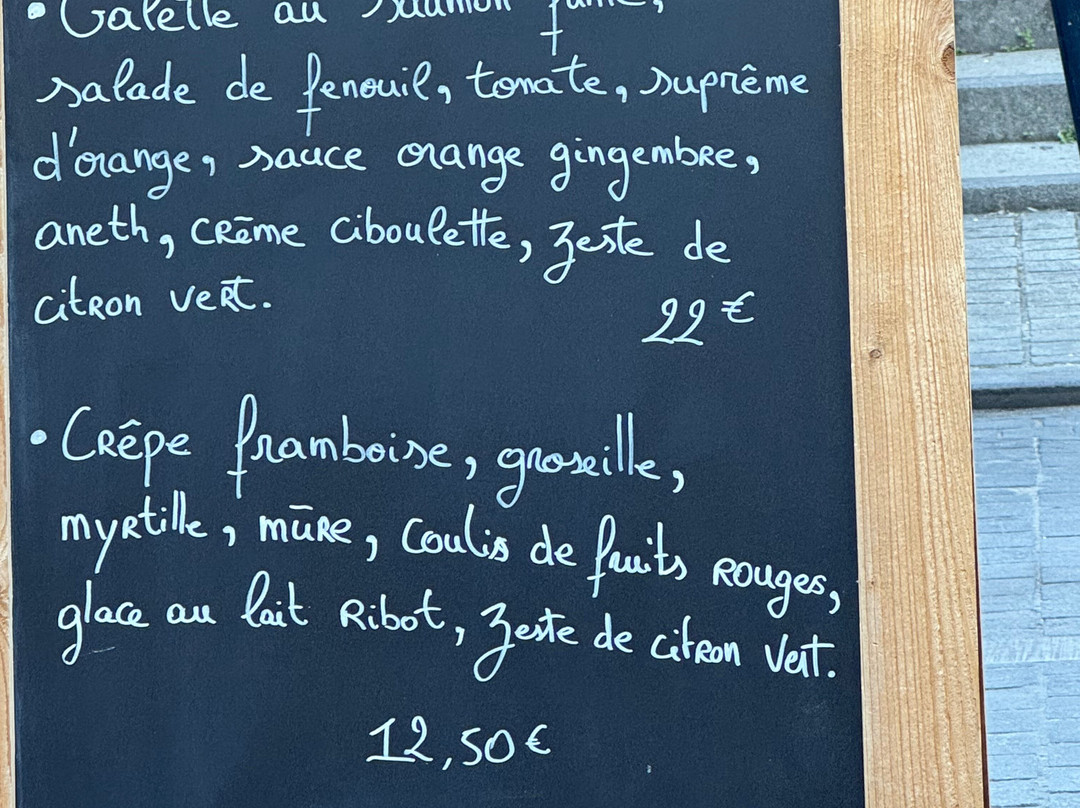 • Galette au saumon fumé,
salade de fenouil, tomate, suprême
d'orange, sauce orange gingembre,
aneth, crème ciboulette, zeste de
citron vert.
22 €
• Crêpe framboise, groseille,
myrtille, mūre, coulis de fruits rouges,
glace au lait Ribot, zeste de citron vert.
12,50 €